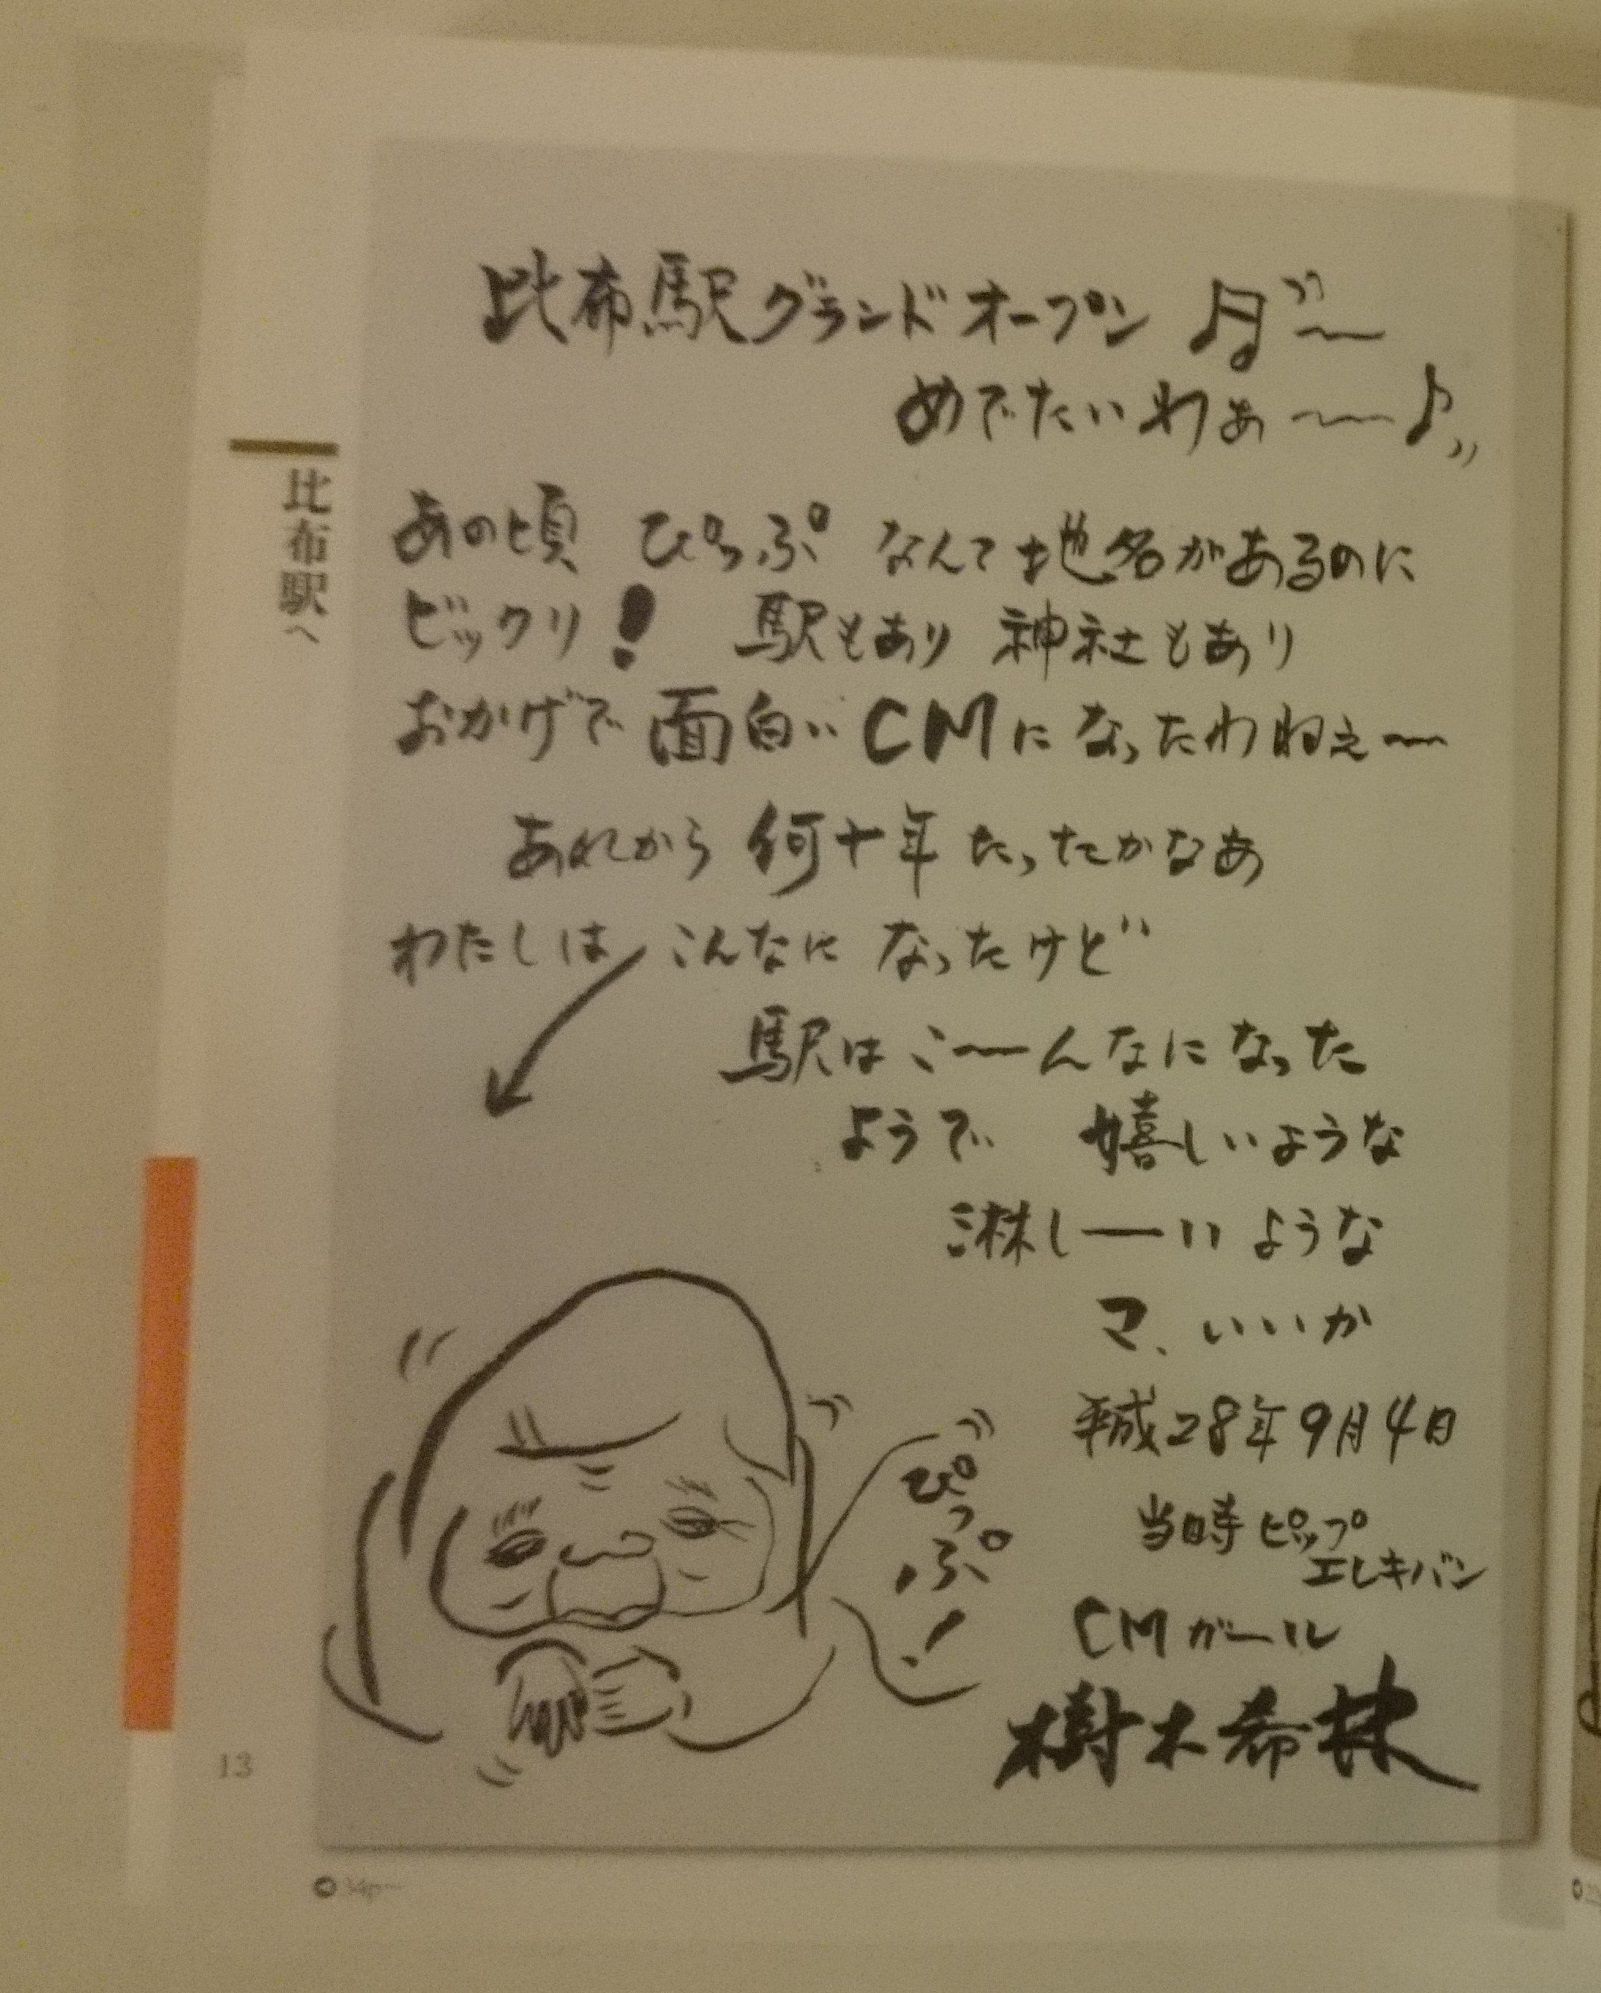 比布駅グランドオープン♬〜
めでたいわぁ〜♪
あの頃 ぴっぷ なんて地名があるのに
ビックリ! 駅もあり 神社もあり
おかげで 面白い CMに なったわねぇ〜
あれから 何十年 たったかなあ
わたしは こんなに なったけど
駅は こ〜んなに なった
ようで 嬉しいような
淋しーい ような
マ、いいか
平成28年9月4日
当時 ピップ
エレキバン
CM ガール
樹木希林
ぴっぷ!
比布駅へ
13
34p